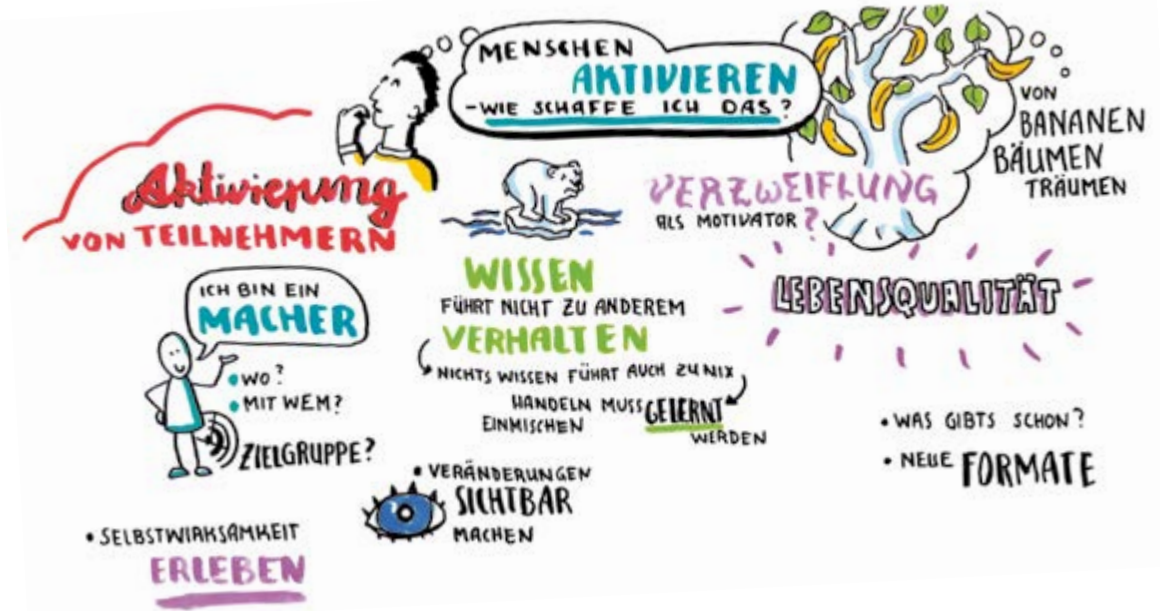 MENSCHEN
AKTIVIEREN
- WIE SCHAFFE ICH DAS?
VON
BANANEN
BÄUMEN
TRÄUMEN
Aktivierung
VON TEILNEHMERN
VERZWEIFLUNG
ALS MOTIVATOR?
ICH BIN EIN
MACHER
• WO?
• MIT WEM?
ZIELGRUPPE?
WISSEN
FÜHRT NICHT ZU ANDEREM
VERHALTEN
NICHTS WISSEN FÜHRT AUCH ZU NIX
HANDELN MUSS GELERNT
EINMISCHEN
WERDEN
LEBENSQUALITÄT
• WAS GIBTS SCHON?
• NEUE FORMATE
• VERÄNDERUNGEN
SICHTBAR
MACHEN
• SELBSTWIRKSAMKEIT
ERLEBEN